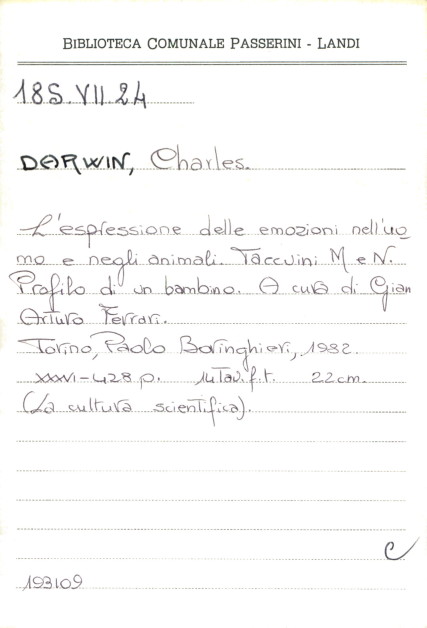 BIBLIOTECA COMUNALE PASSERINI - LANDI
18S.VII.24
DARWIN, Charles.
L'espressione delle emozioni nell'uo
mo e negli animali. Taccuini M e N.
Profilo di un bambino. A cura di Gian
Arturo Ferrari.
Torino, Paolo Boringhieri, 1982.
XXXVI-428 p. 14 Tav. f.t. 22cm.
(La cultura scientifica).
C
193109